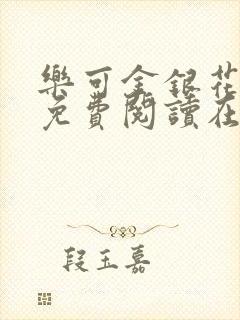 樂可金銀花
免費閱讀在
段玉嘉